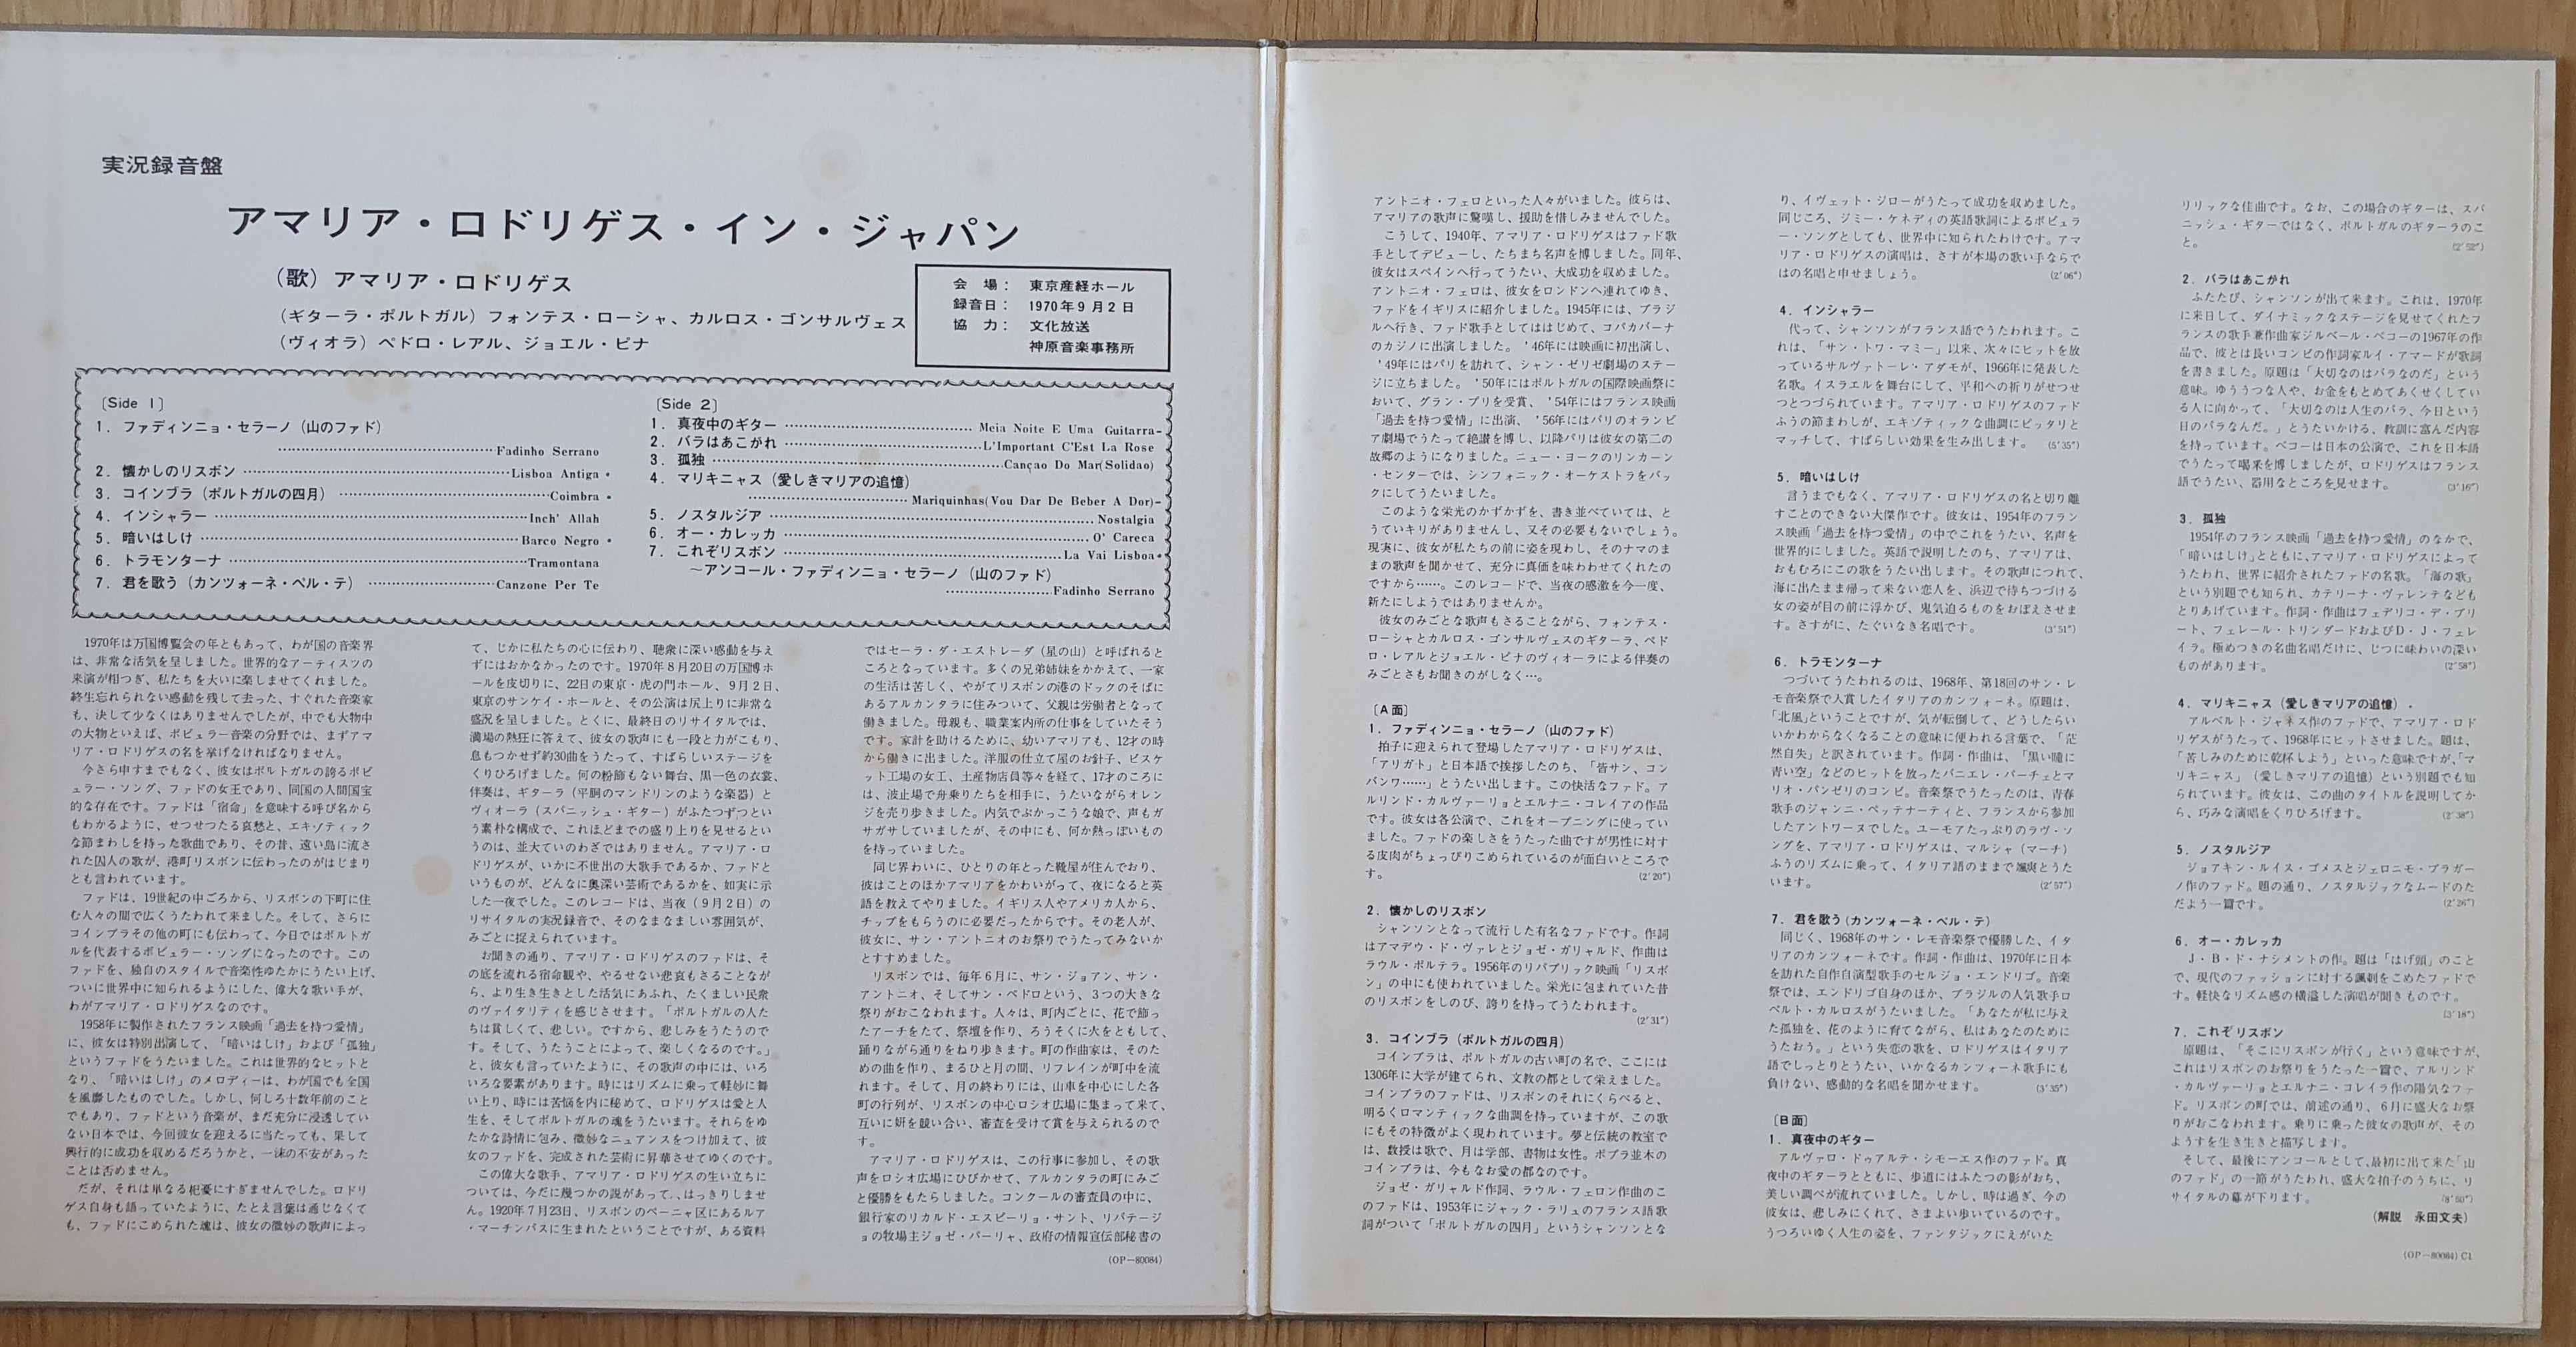 実況録音盤
アマリア・ロドリゲス・イン・ジャパン
(歌) アマリア・ロドリゲス
(ギターラ・ポルトガル) フォンテス・ローシャ、カルロス・ゴンサルヴェス
(ヴィオラ) ペドロ・レアル、ジョエル・ピナ
会 場: 東京産経ホール
録音日: 1970年9月2日
協 力: 文化放送
神原音楽事務所
〔Side 1〕
1. ファディンニョ・セラーノ (山のファド)
Fadinho Serrano
2. 懐かしのリスボン Lisboa Antiga
3. コインブラ (ポルトガルの四月) Coimbra
4. インシャラー Inch' Allah
5. 暗いはしけ Barco Negro
6. トラモンターナ Tramontana
7. 君を歌う (カンツォーネ・ペル・テ) Canzone Per Te
〔Side 2〕
1. 真夜中のギター Meia Noite E Uma Guitarra
2. バラはあこがれ L'Important C'Est La Rose
3. 孤独 Cançao Do Mar(Solidao)
4. マリキニャス (愛しきマリアの追憶)
Mariquinhas(Vou Dar De Beber A Dor)
5. ノスタルジア Nostalgia
6. オー・カレッカ O' Careca
7. これぞリスボン La Vai Lisboa
～アンコール・ファディンニョ・セラーノ (山のファド)
Fadinho Serrano
1970年は万国博覧会の年ともあって、わが国の音楽界
は、非常な活気を呈しました。世界的なアーティスツの
来演が相つぎ、私たちを大いに楽しませてくれました。
終生忘れられない感動を残して去った、すぐれた音楽家
も、決して少なくはありませんでしたが、中でも大物中
の大物といえば、ポピュラー音楽の分野では、まずアマ
リア・ロドリゲスの名を挙げなければなりません。
今さら申すまでもなく、彼女はポルトガルの誇るポピ
ュラー・ソング、ファドの女王であり、同国の人間国宝
的な存在です。ファドは「宿命」を意味する呼び名から
もわかるように、せつせつたる哀愁と、エキゾティック
な節まわしを持った歌曲であり、その昔、遠い島に流さ
れた囚人の歌が、港町リスボンに伝わったのがはじまり
とも言われています。
ファドは、19世紀の中ごろから、リスボンの下町に住
む人々の間で広くうたわれて来ました。そして、さらに
コインブラその他の町にも伝わって、今日ではポルトガ
ルを代表するポピュラー・ソングになったのです。この
ファドを、独自のスタイルで音楽性ゆたかにうたい上げ、
ついに世界中に知られるようにした、偉大な歌い手が、
わがアマリア・ロドリゲスなのです。
1958年に製作されたフランス映画「過去を持つ愛情」
に、彼女は特別出演して、「暗いはしけ」および「孤独」
というファドをうたいました。これは世界的なヒットと
なり、「暗いはしけ」のメロディーは、わが国でも全国
を風靡したものでした。しかし、何しろ十数年前のこと
でもあり、ファドという音楽が、まだ充分に浸透してい
ない日本では、今回彼女を迎えるに当たっても、果して
興行的に成功を収めるだろうかと、一沫の不安があった
ことは否めません。
だが、それは単なる杞憂にすぎませんでした。ロドリ
ゲス自身も語っていたように、たとえ言葉は通じなくて
も、ファドにこめられた魂は、彼女の微妙の歌声によっ
て、じかに私たちの心に伝わり、聴衆に深い感動を与え
ずにはおかなかったのです。1970年8月20日の万国博ホ
ールを皮切りに、22日の東京・虎の門ホール、9月2日、
東京のサンケイ・ホールと、その公演は尻上りに非常な
盛況を呈しました。とくに、最終日のリサイタルでは、
満場の熱狂に答えて、彼女の歌声にも一段と力がこもり、
息もつかせず約30曲をうたって、すばらしいステージを
くりひろげました。何の粉飾もない舞台、黒一色の衣裳、
伴奏は、ギターラ (平胴のマンドリンのような楽器) と
ヴィオーラ (スパニッシュ・ギター) がふたつずつとい
う素朴な構成で、これほどまでの盛り上りを見せるとい
うのは、並大ていのわざではありません。アマリア・ロ
ドリゲスが、いかに不世出の大歌手であるか、ファドと
いうものが、どんなに奥深い芸術であるかを、如実に示
した一夜でした。このレコードは、当夜 (9月2日) の
リサイタルの実況録音で、そのなまなましい雰囲気が、
みごとに捉えられています。
お聞きの通り、アマリア・ロドリゲスのファドは、そ
の底を流れる宿命観や、やるせない悲哀もさることなが
ら、より生き生きとした活気にあふれ、たくましい民衆
のヴァイタリティを感じさせます。「ポルトガルの人た
ちは貧しくて、悲しい。ですから、悲しみをうたうので
す。そして、うたうことによって、楽しくなるのです。」
と、彼女も言っていたように、その歌声の中には、いろ
いろな要素があります。時にはリズムに乗って軽妙に舞
い上り、時には苦悩を内に秘めて、ロドリゲスは愛と人
生を、そしてポルトガルの魂をうたいます。それらをゆ
たかな詩情に包み、微妙なニュアンスをつけ加えて、彼
女のファドを、完成された芸術に昇華させてゆくのです。
この偉大な歌手、アマリア・ロドリゲスの生い立ちに
ついては、今だに幾つかの説があって、、はっきりしませ
ん。1920年7月23日、リスボンのペーニャ区にあるルア
・マーチンバスに生まれたということですが、ある資料
ではセーラ・ダ・エストレーダ (星の山) と呼ばれると
ころとなっています。多くの兄弟姉妹をかかえて、一家
の生活は苦しく、やがてリスボンの港のドックのそばに
あるアルカンタラに住みついて、父親は労働者となって
働きました。母親も、職業案内所の仕事をしていたそう
です。家計を助けるために、幼いアマリアも、12才の時
から働きに出ました。洋服の仕立て屋のお針子、ビスケ
ット工場の女工、土産物店員等々を経て、17才のころに
は、波止場で舟乗りたちを相手に、うたいながらオレン
ジを売り歩きました。内気でぶかっこうな娘で、声もガ
サガサしていましたが、その中にも、何か熱っぽいもの
を持っていました。
同じ界わいに、ひとりの年とった靴屋が住んでおり、
彼はことのほかアマリアをかわいがって、夜になると英
語を教えてやりました。イギリス人やアメリカ人から、
チップをもらうのに必要だったからです。その老人が、
彼女に、サン・アントニオのお祭りでうたってみないか
とすすめました。
リスボンでは、毎年6月に、サン・ジョアン、サン・
アントニオ、そしてサン・ペドロという、3つの大きな
祭りがおこなわれます。人々は、町内ごとに、花で飾っ
たアーチをたて、祭壇を作り、ろうそくに火をともして、
踊りながら通りをねり歩きます。町の作曲家は、そのた
めの曲を作り、まるひと月の間、リフレインが町中を流
れます。そして、月の終わりには、山車を中心にした各
町の行列が、リスボンの中心ロシオ広場に集まって来て、
互いに妍を競い合い、審査を受けて賞を与えられるので
す。
アマリア・ロドリゲスは、この行事に参加し、その歌
声をロシオ広場にひびかせて、アルカンタラの町にみご
と優勝をもたらしました。コンクールの審査員の中に、
銀行家のリカルド・エスピーリョ・サント、リバテージ
ョの牧場主ジョゼ・パーリャ、政府の情報宣伝部秘書の
(OP-80084)
アントニオ・フェロといった人々がいました。彼らは、
アマリアの歌声に驚嘆し、援助を惜しみませんでした。
こうして、1940年、アマリア・ロドリゲスはファド歌
手としてデビューし、たちまち名声を博しました。同年、
彼女はスペインへ行ってうたい、大成功を収めました。
アントニオ・フェロは、彼女をロンドンへ連れてゆき、
ファドをイギリスに紹介しました。1945年には、ブラジ
ルへ行き、ファド歌手としてははじめて、コパカバーナ
のカジノに出演しました。'46年には映画に初出演し、
'49年にはパリを訪れて、シャン・ゼリゼ劇場のステー
ジに立ちました。'50年にはポルトガルの国際映画祭に
おいて、グラン・プリを受賞、'54年にはフランス映画
「過去を持つ愛情」に出演、'56年にはパリのオランピ
ア劇場でうたって絶讃を博し、以降パリは彼女の第二の
故郷のようになりました。ニュー・ヨークのリンカーン
・センターでは、シンフォニック・オーケストラをバッ
クにしてうたいました。
このような栄光のかずかずを、書き並べていては、と
うていキリがありませんし、又その必要もないでしょう。
現実に、彼女が私たちの前に姿を現わし、そのナマのま
まの歌声を聞かせて、充分に真価を味わわせてくれたの
ですから……。このレコードで、当夜の感激を今一度、
新たにしようではありませんか。
彼女のみごとな歌声もさることながら、フォンテス・
ローシャとカルロス・ゴンサルヴェスのギターラ、ペド
ロ・レアルとジョエル・ピナのヴィオーラによる伴奏の
みごとさもお聞きのがしなく…。
〔A面〕
1. ファディンニョ・セラーノ (山のファド)
拍子に迎えられて登場したアマリア・ロドリゲスは、
「アリガト」と日本語で挨拶したのち、「皆サン、コン
バンワ……」とうたい出します。この快活なファド。ア
ルリンド・カルヴァーリョとエルナニ・コレイアの作品
です。彼女は各公演で、これをオープニングに使ってい
ました。ファドの楽しさをうたった曲ですが男性に対す
る皮肉がちょっぴりこめられているのが面白いところで
す。 (2'20")
2. 懐かしのリスボン
シャンソンとなって流行した有名なファドです。作詞
はアマデウ・ド・ヴァレとジョゼ・ガリャルド、作曲は
ラウル・ポルテラ。1956年のリパブリック映画「リスボ
ン」の中にも使われていました。栄光に包まれていた昔
のリスボンをしのび、誇りを持ってうたわれます。
(2'31")
3. コインブラ (ポルトガルの四月)
コインブラは、ポルトガルの古い町の名で、ここには
1306年に大学が建てられ、文教の都として栄えました。
コインブラのファドは、リスボンのそれにくらべると、
明るくロマンティックな曲調を持っていますが、この歌
にもその特徴がよく現われています。夢と伝統の教室で
は、教授は歌で、月は学部、書物は女性。ポプラ並木の
コインブラは、今もなお愛の都なのです。
ジョゼ・ガリャルド作詞、ラウル・フェロン作曲のこ
のファドは、1953年にジャック・ラリュのフランス語歌
詞がついて「ポルトガルの四月」というシャンソンとな
り、イヴェット・ジローがうたって成功を収めました。
同じころ、ジミー・ケネディの英語歌詞によるポピュラ
ー・ソングとしても、世界中に知られたわけです。アマ
リア・ロドリゲスの演唱は、さすが本場の歌い手ならで
はの名唱と申せましょう。 (2'06")
4. インシャラー
代って、シャンソンがフランス語でうたわれます。こ
れは、「サン・トワ・マミー」以来、次々にヒットを放
っているサルヴァトーレ・アダモが、1966年に発表した
名歌。イスラエルを舞台にして、平和への祈りがせつせ
つとつづられています。アマリア・ロドリゲスのファド
ふうの節まわしが、エキゾティックな曲調にピッタリと
マッチして、すばらしい効果を生み出します。 (5'35")
5. 暗いはしけ
言うまでもなく、アマリア・ロドリゲスの名と切り離
すことのできない大傑作です。彼女は、1954年のフラン
ス映画「過去を持つ愛情」の中でこれをうたい、名声を
世界的にしました。英語で説明したのち、アマリアは、
おもむろにこの歌をうたい出します。その歌声につれて、
海に出たまま帰って来ない恋人を、浜辺で待ちつづける
女の姿が目の前に浮かび、鬼気迫るものをおぼえさせま
す。さすがに、たぐいなき名唱です。 (3'51")
6. トラモンターナ
つづいてうたわれるのは、1968年、第18回のサン・レ
モ音楽祭で入賞したイタリアのカンツォーネ。原題は、
「北風」ということですが、気が転倒して、どうしたらい
いかわからなくなることの意味に使われる言葉で、「茫
然自失」と訳されています。作詞・作曲は、「黒い瞳に
青い空」などのヒットを放ったパニエレ・パーチェとマ
リオ・パンゼリのコンビ。音楽祭でうたったのは、青春
歌手のジャンニ・ペッテナーティと、フランスから参加
したアントワーヌでした。ユーモアたっぷりのラヴ・ソ
ングを、アマリア・ロドリゲスは、マルシャ (マーチ)
ふうのリズムに乗って、イタリア語のままで颯爽とうた
います。 (2'57")
7. 君を歌う (カンツォーネ・ペル・テ)
同じく、1968年のサン・レモ音楽祭で優勝した、イタ
リアのカンツォーネです。作詞・作曲は、1970年に日本
を訪れた自作自演型歌手のセルジョ・エンドリゴ。音楽
祭では、エンドリゴ自身のほか、ブラジルの人気歌手ロ
ベルト・カルロスがうたいました。「あなたが私に与え
た孤独を、花のように育てながら、私はあなたのために
うたおう。」という失恋の歌を、ロドリゲスはイタリア
語でしっとりとうたい、いかなるカンツォーネ歌手にも
負けない、感動的な名唱を聞かせます。 (3'35")
〔B面〕
1. 真夜中のギター
アルヴァロ・ドゥアルテ・シモーエス作のファド。真
夜中のギターラとともに、歩道にはふたつの影がおち、
美しい調べが流れていました。しかし、時は過ぎ、今の
彼女は、悲しみにくれて、さまよい歩いているのです。
うつろいゆく人生の姿を、ファンタジックにえがいた
リリックな佳曲です。なお、この場合のギターは、スパ
ニッシュ・ギターではなく、ポルトガルのギターラのこ
と。 (2'52")
2. バラはあこがれ
ふたたび、シャンソンが出て来ます。これは、1970年
に来日して、ダイナミックなステージを見せてくれたフ
ランスの歌手兼作曲家ジルベール・ベコーの1967年の作
品で、彼とは長いコンビの作詞家ルイ・アマードが歌詞
を書きました。原題は「大切なのはバラなのだ」という
意味。ゆううつな人や、お金をもとめてあくせくしてい
る人に向かって、「大切なのは人生のバラ、今日という
日のバラなんだ。」とうたいかける、教訓に富んだ内容
を持っています。ベコーは日本の公演で、これを日本語
でうたって喝采を博しましたが、ロドリゲスはフランス
語でうたい、器用なところを見せます。 (3'16")
3. 孤独
1954年のフランス映画「過去を持つ愛情」のなかで、
「暗いはしけ」とともに、アマリア・ロドリゲスによって
うたわれ、世界に紹介されたファドの名歌。「海の歌」
という別題でも知られ、カテリーナ・ヴァレンテなども
とりあげています。作詞・作曲はフェデリコ・デ・ブリ
ート、フェレール・トリンダードおよびD・J・フェレ
イラ。極めつきの名曲名唱だけに、じつに味わいの深い
ものがあります。 (2'58")
4. マリキニャス (愛しきマリアの追憶)
アルベルト・ジャネス作のファドで、アマリア・ロド
リゲスがうたって、1968年にヒットさせました。題は、
「苦しみのために乾杯しよう」といった意味ですが、「マ
リキニャス」 (愛しきマリアの追憶) という別題でも知
られています。彼女は、この曲のタイトルを説明してか
ら、巧みな演唱をくりひろげます。 (2'38")
5. ノスタルジア
ジョアキン・ルイス・ゴメスとジェロニモ・ブラガー
ノ作のファド。題の通り、ノスタルジックなムードのた
だよう一篇です。 (2'26")
6. オー・カレッカ
J・B・ド・ナシメントの作。題は「はげ頭」のこと
で、現代のファッションに対する諷刺をこめたファドで
す。軽快なリズム感の横溢した演唱が聞きものです。
(3'18")
7. これぞリスボン
原題は、「そこにリスボンが行く」という意味ですが、
これはリスボンのお祭りをうたった一篇で、アルリンド
・カルヴァーリョとエルナニ・コレイラ作の陽気なファ
ド。リスボンの町では、前述の通り、6月に盛大なお祭
りがおこなわれます。乗りに乗った彼女の歌声が、その
ようすを生き生きと描写します。
そして、最後にアンコールとして、最初に出て来た「山
のファド」の一節がうたわれ、盛大な拍子のうちに、リ
サイタルの幕が下ります。
(解説 永田文夫)
(OP-80084) C1